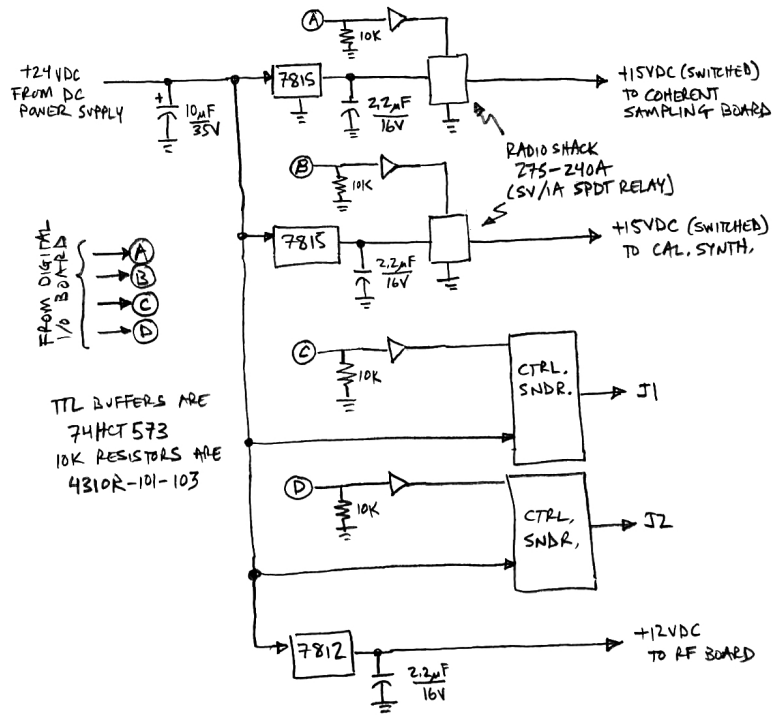 A
10K
+24VDC
FROM DC
POWER SUPPLY
+
10µF
35V
7815
2.2µF
16V
+15VDC (SWITCHED)
TO COHERENT
SAMPLING BOARD
RADIO SHACK
275-240A
(5V/1A SPDT RELAY)
B
10K
7815
2.2µF
16V
+15VDC (SWITCHED)
TO CAL. SYNTH.
FROM DIGITAL
I/O BOARD
A
B
C
D
C
10K
CTRL.
SNDR.
J1
TTL BUFFERS ARE
74HCT573
10K RESISTORS ARE
4310R-101-103
D
10K
CTRL.
SNDR.
J2
7812
2.2µF
16V
+12VDC
TO RF BOARD